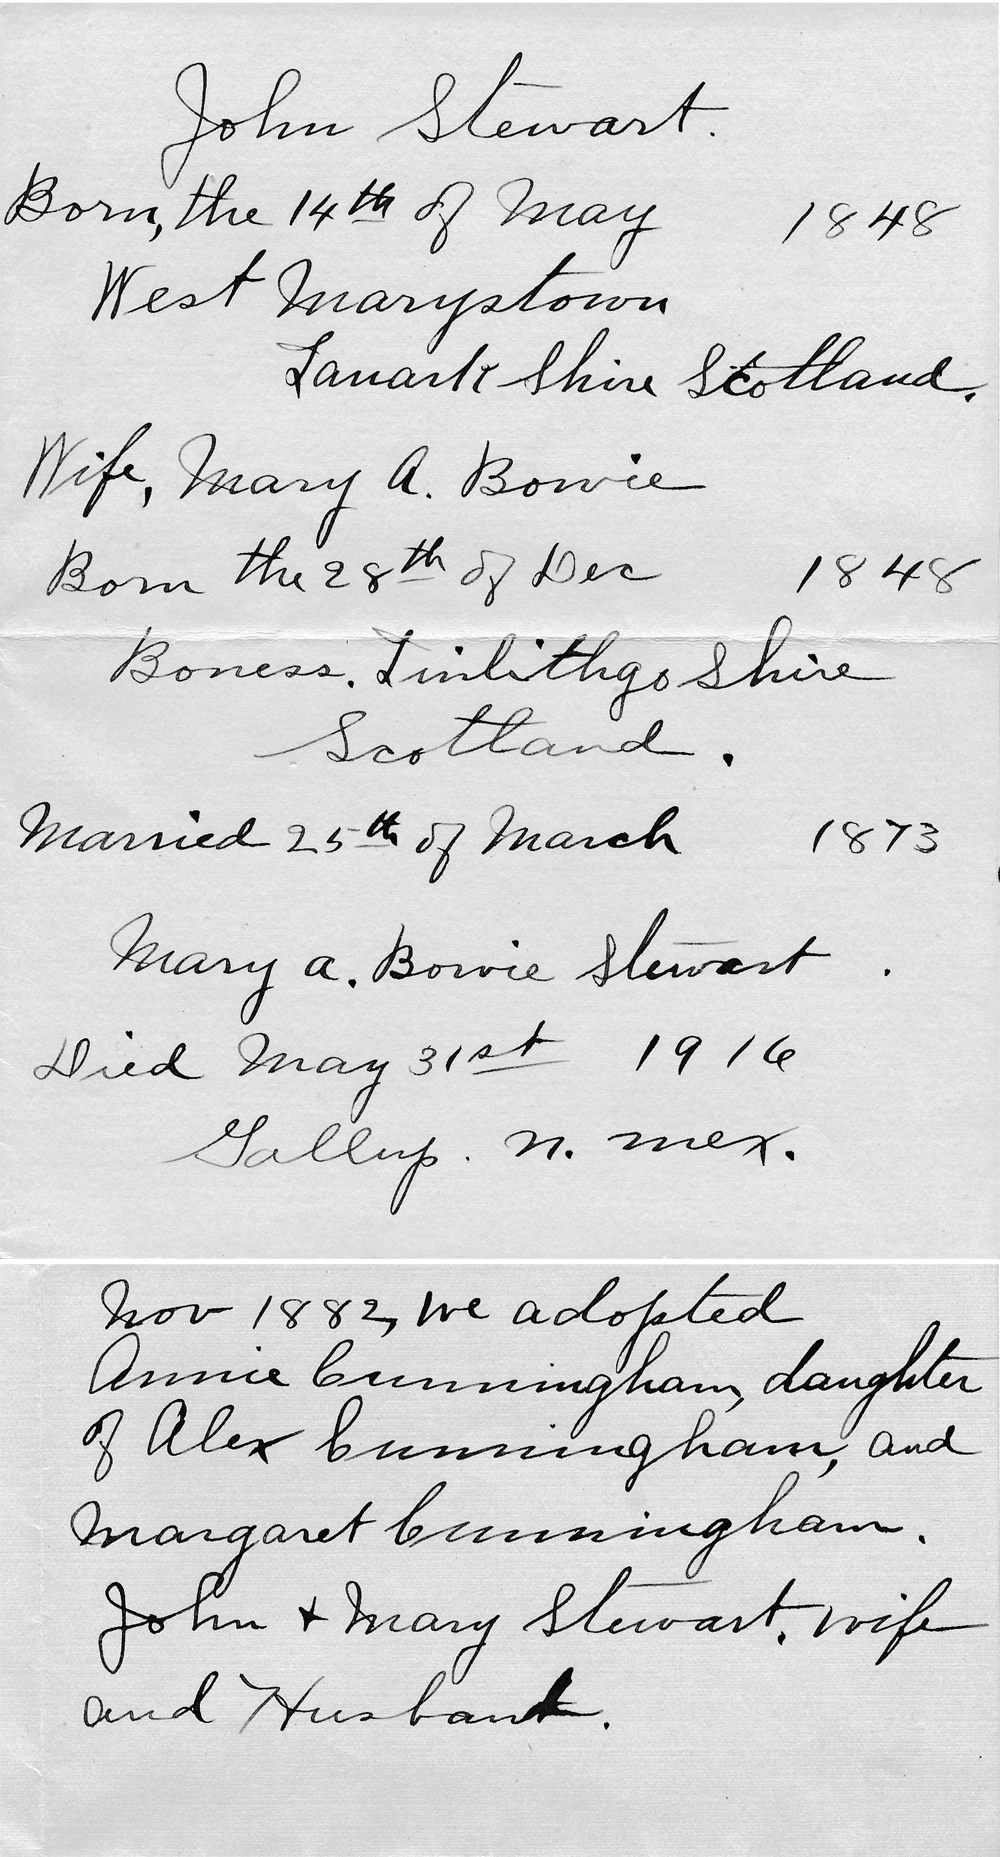 John Stewart.
Born, the 14th of May 1848
West Marystown
Lanark Shire Scotland.
Wife, Mary A. Bowie
Born the 28th of Dec 1848
Boness. Linlithgo Shire
Scotland.
Married 25th of March 1873
Mary A. Bowie Stewart.
Died May 31st 1916
Gallup. N. Mex.
Nov 1882, we adopted
Annie Cunningham, daughter
of Alex Cunningham, and
Margaret Cunningham.
John + Mary Stewart. wife
and Husband.